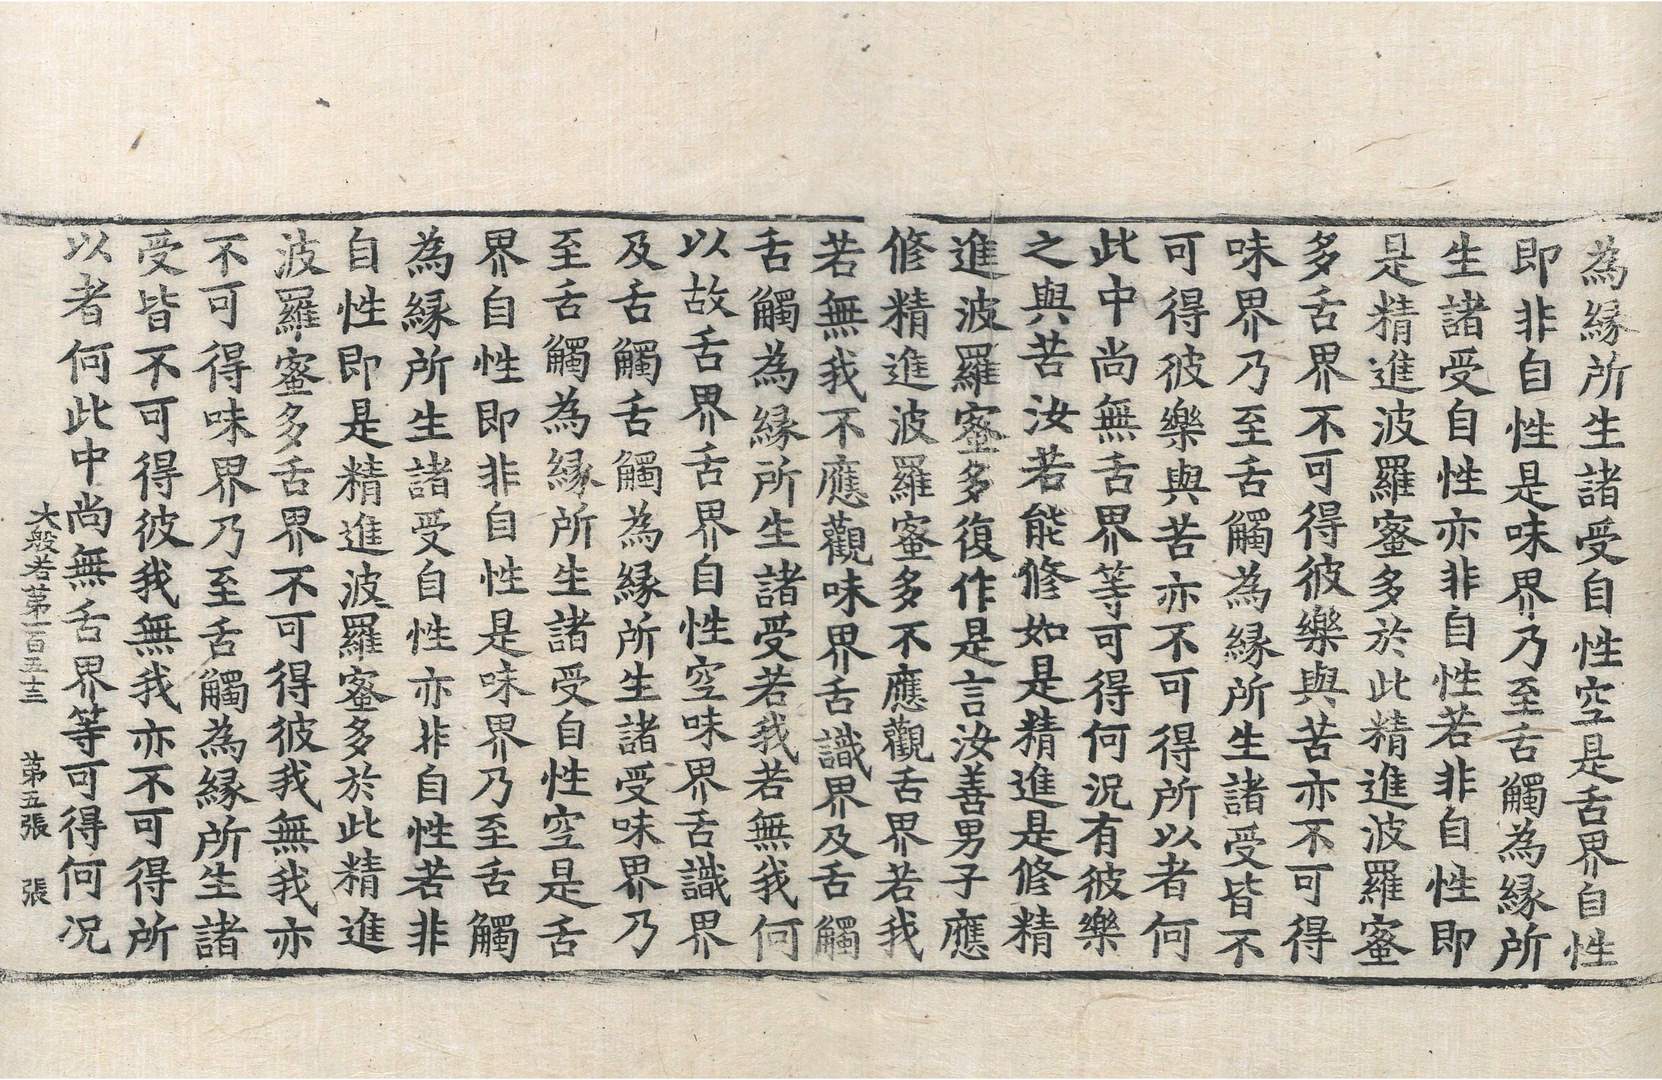 為緣所生諸受自性空是舌界自性
即非自性是味界乃至舌觸為緣所
生諸受自性亦非自性若非自性即
是精進波羅蜜多於此精進波羅蜜
多舌界不可得彼樂與苦亦不可得
味界乃至舌觸為緣所生諸受皆不
可得彼樂與苦亦不可得所以者何
此中尚無舌界等可得何況有彼樂
之與苦汝若能修如是精進是修精
進波羅蜜多復作是言汝善男子應
修精進波羅蜜多不應觀舌界若我
若無我不應觀味界舌識界及舌觸
舌觸為緣所生諸受若我若無我何
以故舌界舌界自性空味界舌識界
及舌觸舌觸為緣所生諸受味界乃
至舌觸為緣所生諸受自性空是舌
界自性即非自性是味界乃至舌觸
為緣所生諸受自性亦非自性若非
自性即是精進波羅蜜多於此精進
波羅蜜多舌界不可得彼我無我亦
不可得味界乃至舌觸為緣所生諸
受皆不可得彼我無我亦不可得所
以者何此中尚無舌界等可得何況
大般若第一百五十三 第五張 張